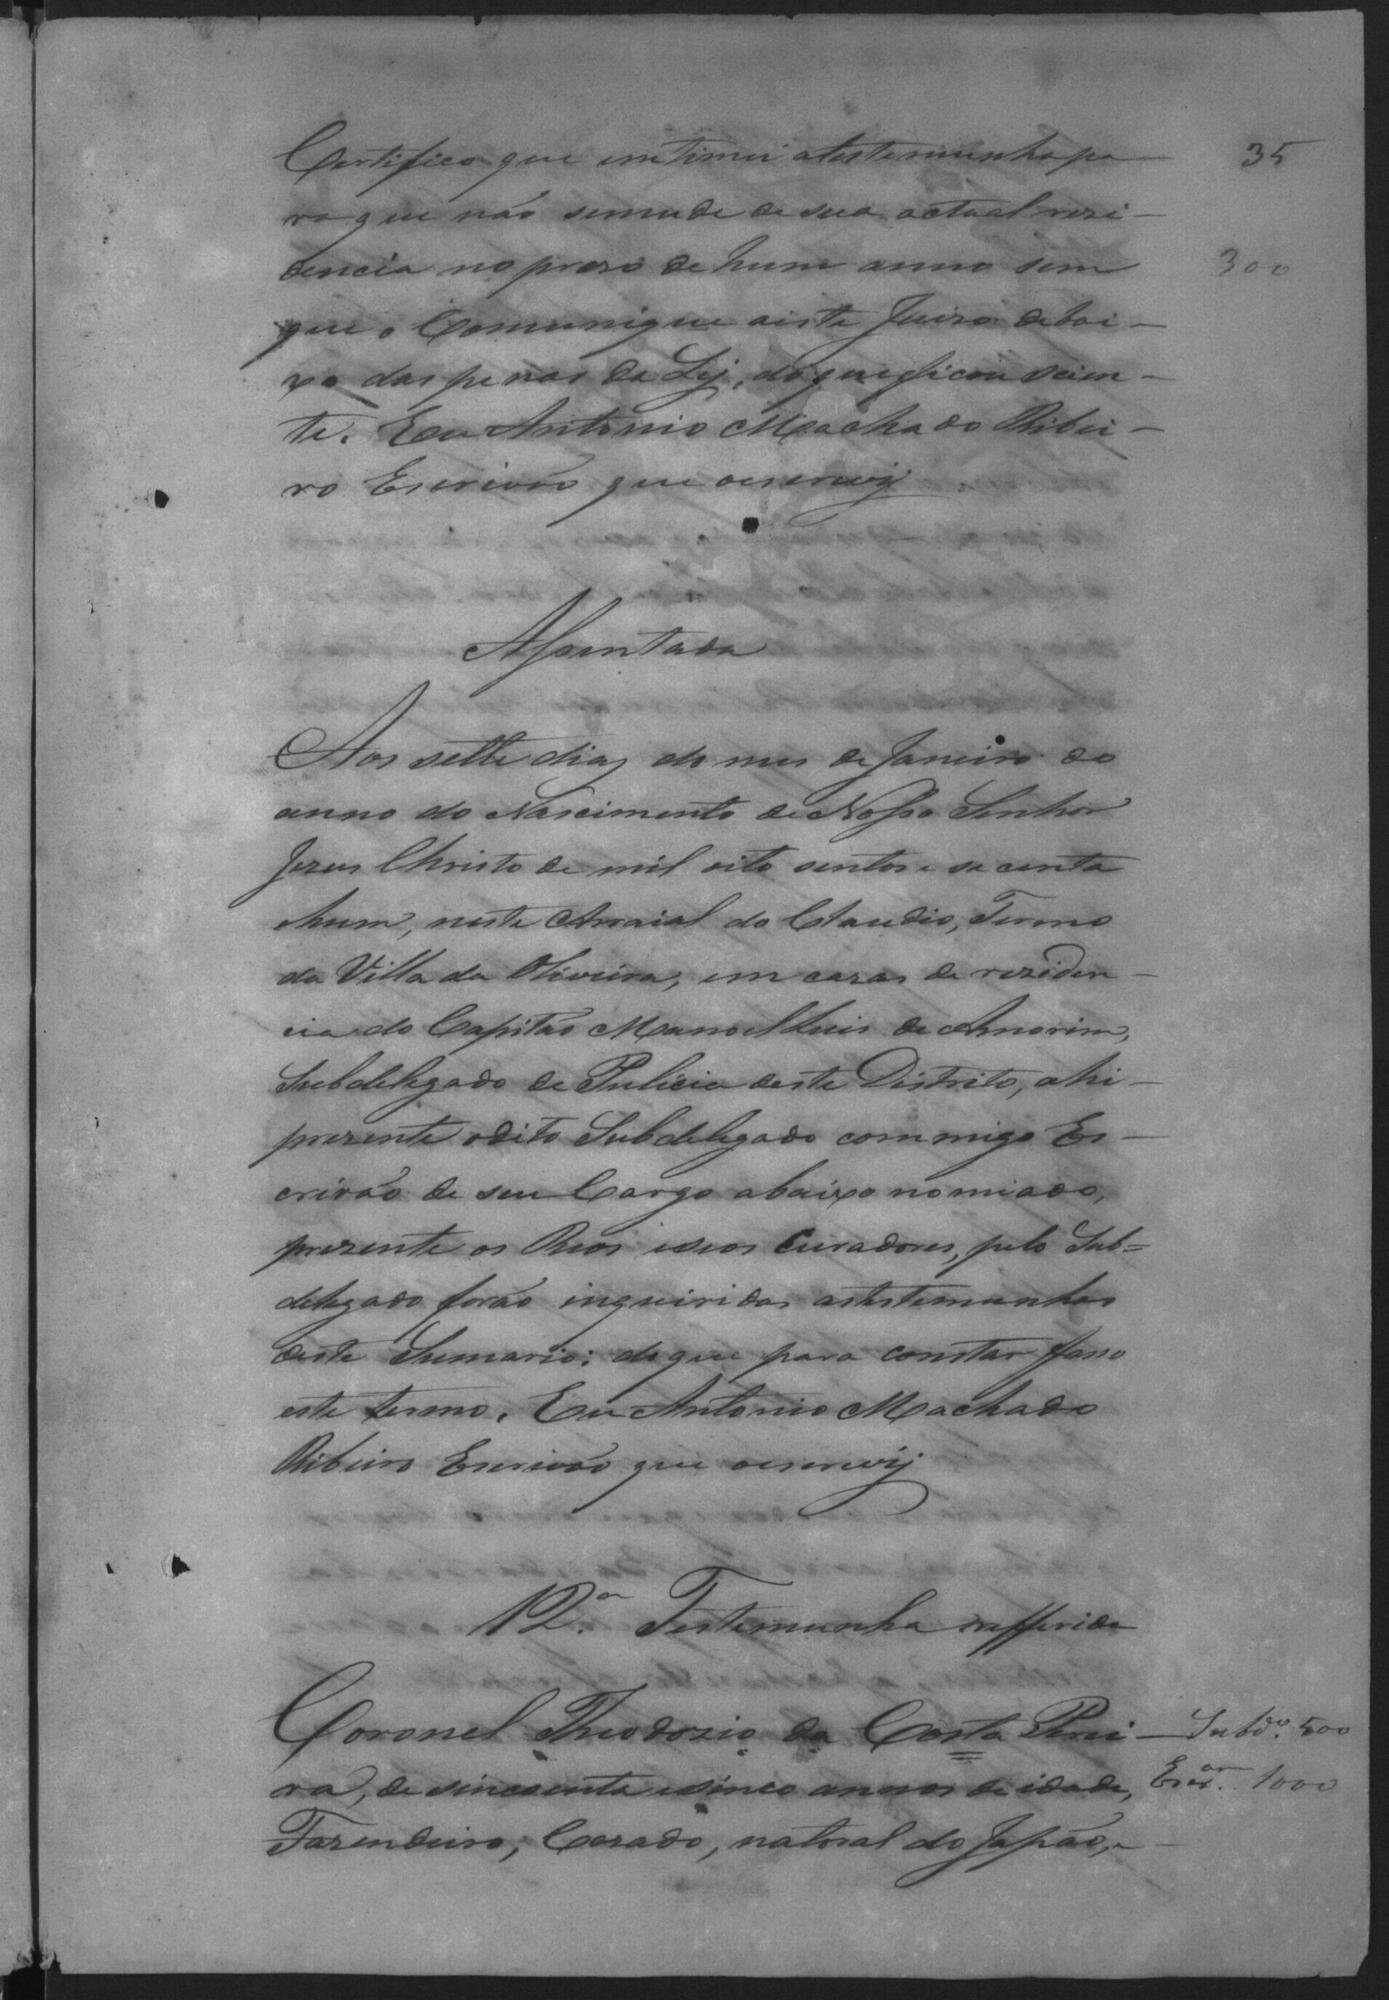 35
Certifico que intimei atestemunha pa-
ra que não semude de sua actual rezi-
dencia no prazo de hum anno sem
que o Comunique aeste Juizo debai-
xo das penas da Lej, do que ficou scien-
te. Eu Antonio Machado Ribei-
ro Escrivão que oescrevÿ
300
Assentada
Aos sette dias do mes de Janeiro do
anno do Nascimento de Nosso Senhor
Jezus Christo de mil oito sentos e secenta
ehum, neste Arraial do Claudio, Termo
da Villa da Oliveira, em cazas de reziden-
cia do Capitão Manoel Luis de Amorim,
Subdelegado de Pulicia deste Distrito, ahi-
prezente odito Subdelegado commigo Es-
crivão de seu Cargo abaixo nomiado,
prezente os Reos eseos Curadores, pelo Sub=
delegado forão inqueiridas astestemunhas
deste Sumario; do que para constar faso
este termo. Eu Antonio Machado
Ribeiro Escrivão que oescrevÿ
12.ª Testemunha refferida
Coronel Theodozio da Costa Perei-
ra, de sincoenta esinco annos de idade,
Fazendeiro, Cazado, natoral do Japão, e-
Subd.º 500
Escr.am 1000